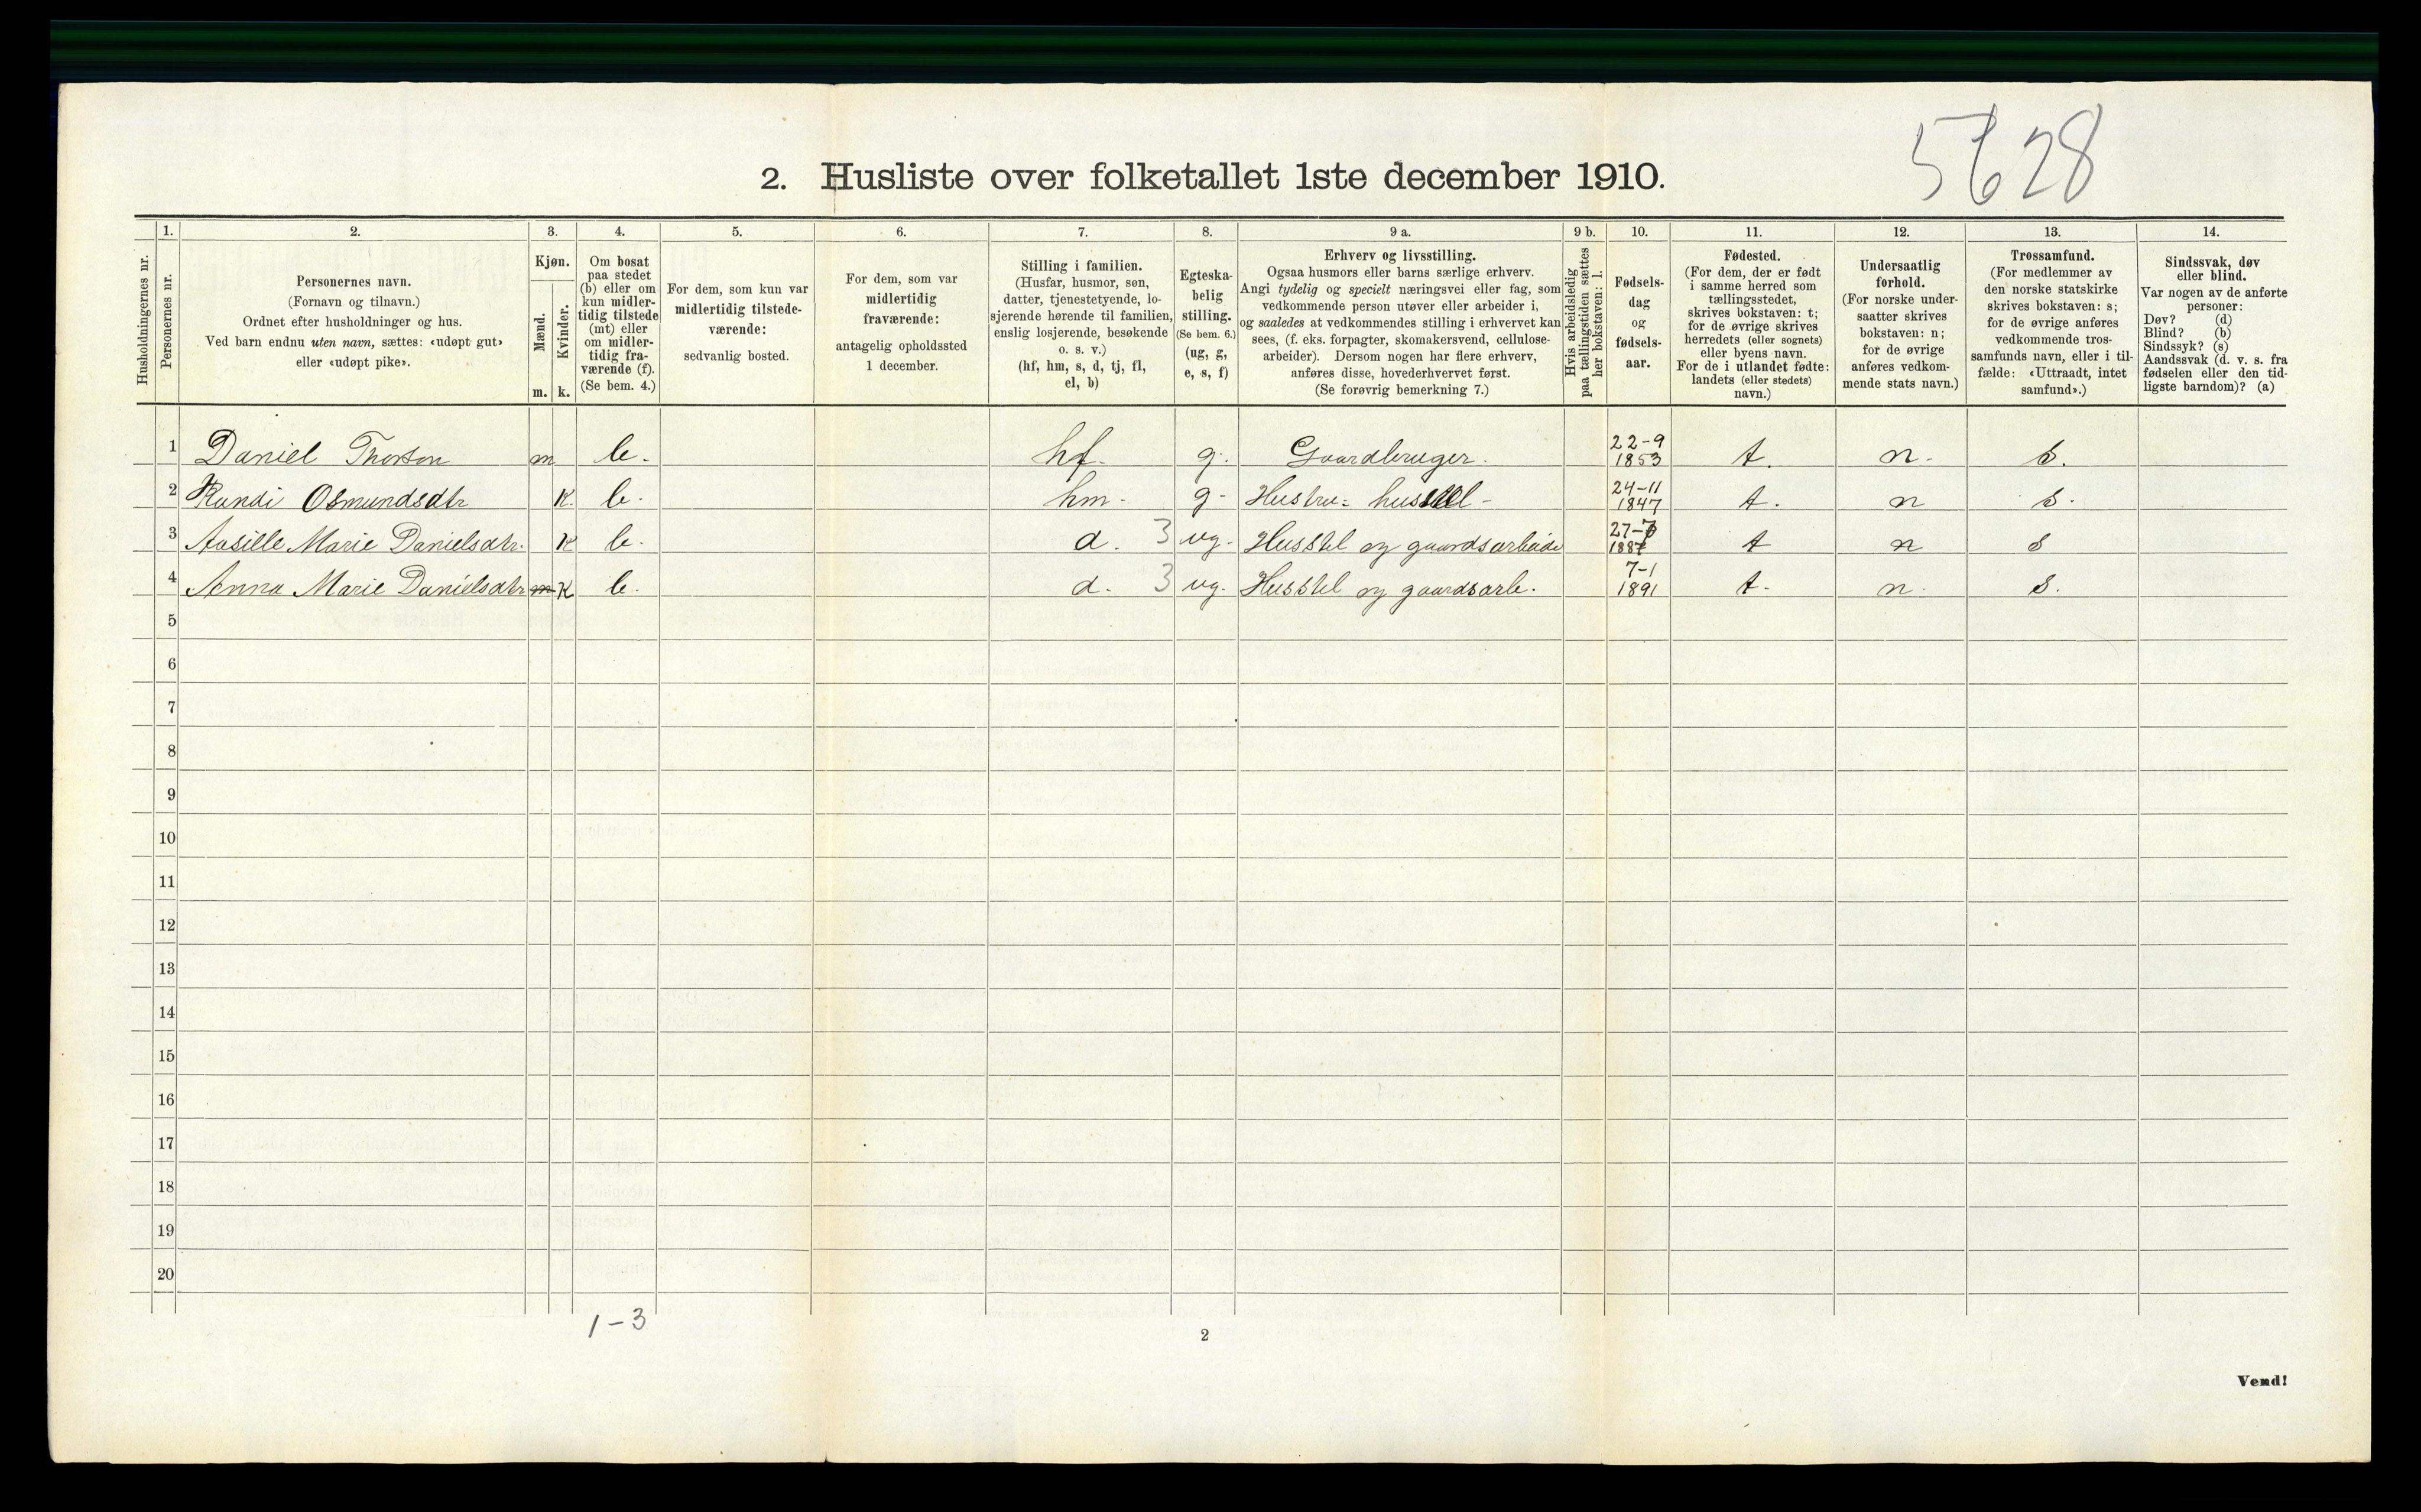 5628
2. Husliste over folketallet 1ste december 1910.
1. 2. 3. 4. 5. 6. 7. 8. 9 a. 9 b. 10. 11. 12. 13. 14.
Husholdningernes nr.
Personernes nr.
Personernes navn.
(Fornavn og tilnavn.)
Ordnet efter husholdninger og hus.
Ved barn endnu uten navn, sættes: «udøpt gut»
eller «udøpt pike».
Kjøn.
Mænd.
Kvinder.
m. k.
Om bosat
paa stedet
(b) eller om
kun midler-
tidig tilstede
(mt) eller
om midler-
tidig fra-
værende (f).
(Se bem. 4.)
For dem, som kun var
midlertidig tilstede-
værende:
sedvanlig bosted.
For dem, som var
midlertidig
fraværende:
antagelig opholdssted
1 december.
Stilling i familien.
(Husfar, husmor, søn,
datter, tjenestetyende, lo-
sjerende hørende til familien,
enslig losjerende, besøkende
o. s. v.)
(hf, hm, s, d, tj, fl,
el, b)
Egteska-
belig
stilling.
(Se bem. 6.)
(ug, g,
e, s, f)
Erhverv og livsstilling.
Ogsaa husmors eller barns særlige erhverv.
Angi tydelig og specielt næringsvei eller fag, som
vedkommende person utøver eller arbeider i,
og saaledes at vedkommendes stilling i erhvervet kan
sees, (f. eks. forpagter, skomakersvend, cellulose-
arbeider). Dersom nogen har flere erhverv,
anføres disse, hovederhvervet først.
(Se forøvrig bemerkning 7.)
Hvis arbeidsledig
paa tællingstiden sættes
her bokstaven: l.
Fødsels-
dag
og
fødsels-
aar.
Fødested.
(For dem, der er født
i samme herred som
tællingsstedet,
skrives bokstaven: t;
for de øvrige skrives
herredets (eller sognets)
eller byens navn.
For de i utlandet fødte:
landets (eller stedets)
navn.)
Undersaatlig
forhold.
(For norske under-
saatter skrives
bokstaven: n;
for de øvrige
anføres vedkom-
mende stats navn.)
Trossamfund.
(For medlemmer av
den norske statskirke
skrives bokstaven: s;
for de øvrige anføres
vedkommende tros-
samfunds navn, eller i til-
fælde: «Uttraadt, intet
samfund».)
Sindssvak, døv
eller blind.
Var nogen av de anførte
personer:
Døv? (d)
Blind? (b)
Sindssyk? (s)
Aandssvak (d. v. s. fra
fødselen eller den tid-
ligste barndom)? (a)
1 Daniel Thorson m b. hf. g. Gaardbruger. 22-9 1853 t. n. s.
2 Randi Osmundsdtr K. b. hm. g- Hustru: husstel - 24-11 1847 t. n s.
3 Aasille Marie Danielsdtr. K b. d. 3 ug. Husstel og gaardsarbeide 27-7 1887 t n s
4 Anna Marie Danielsdtr m K b. d. 3 ug. Husstel og gaardsarb. 7-1 1891 t. n. s.
5
6
7
8
9
10
11
12
13
14
15
16
17
18
19
20
1-3
2
Vend!